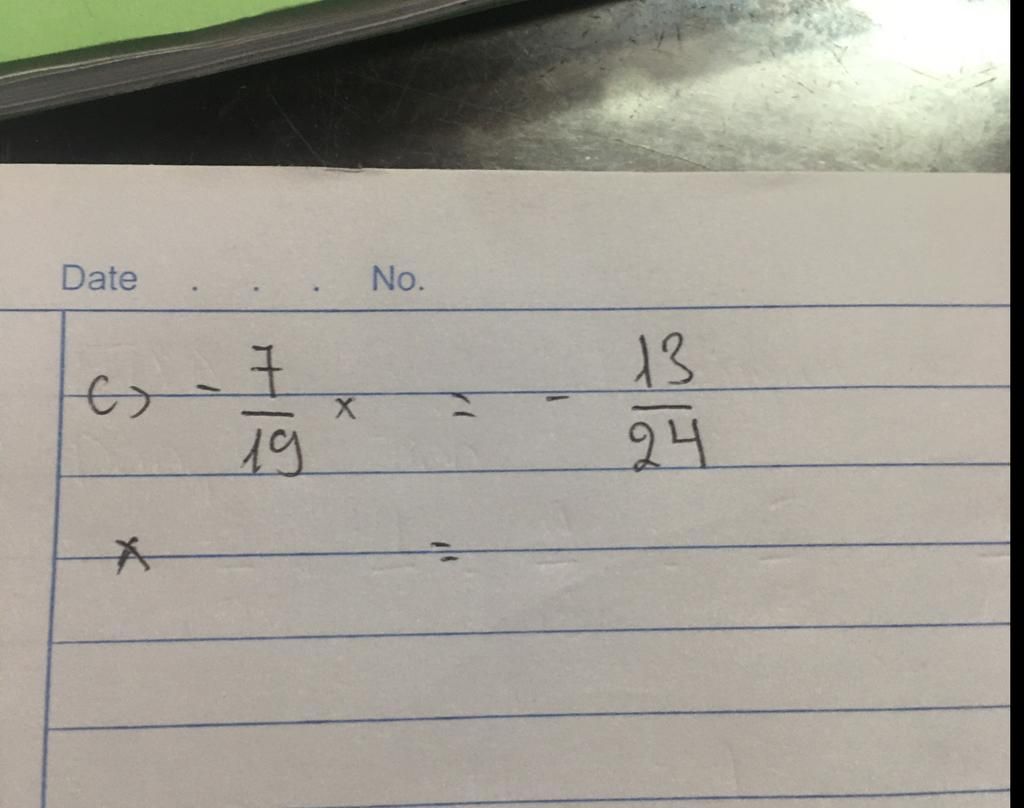 Date . . . No.
C) - 7/19 x = - 13/24
x =